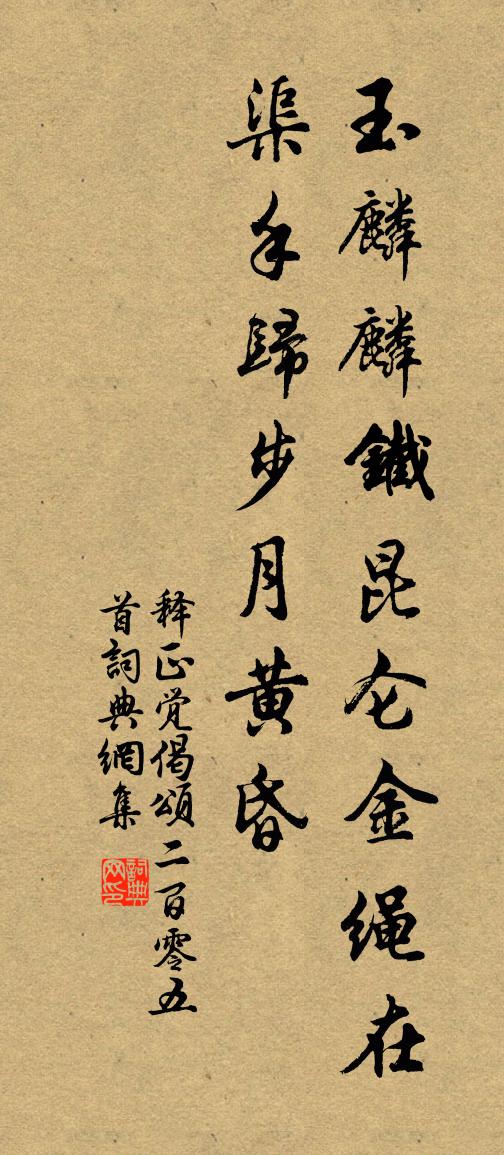 玉麟麟鐵昆仑金绳在
渠手歸步月黄昏
释正觉偈頌二百零五
首詞典網集
詞典网印